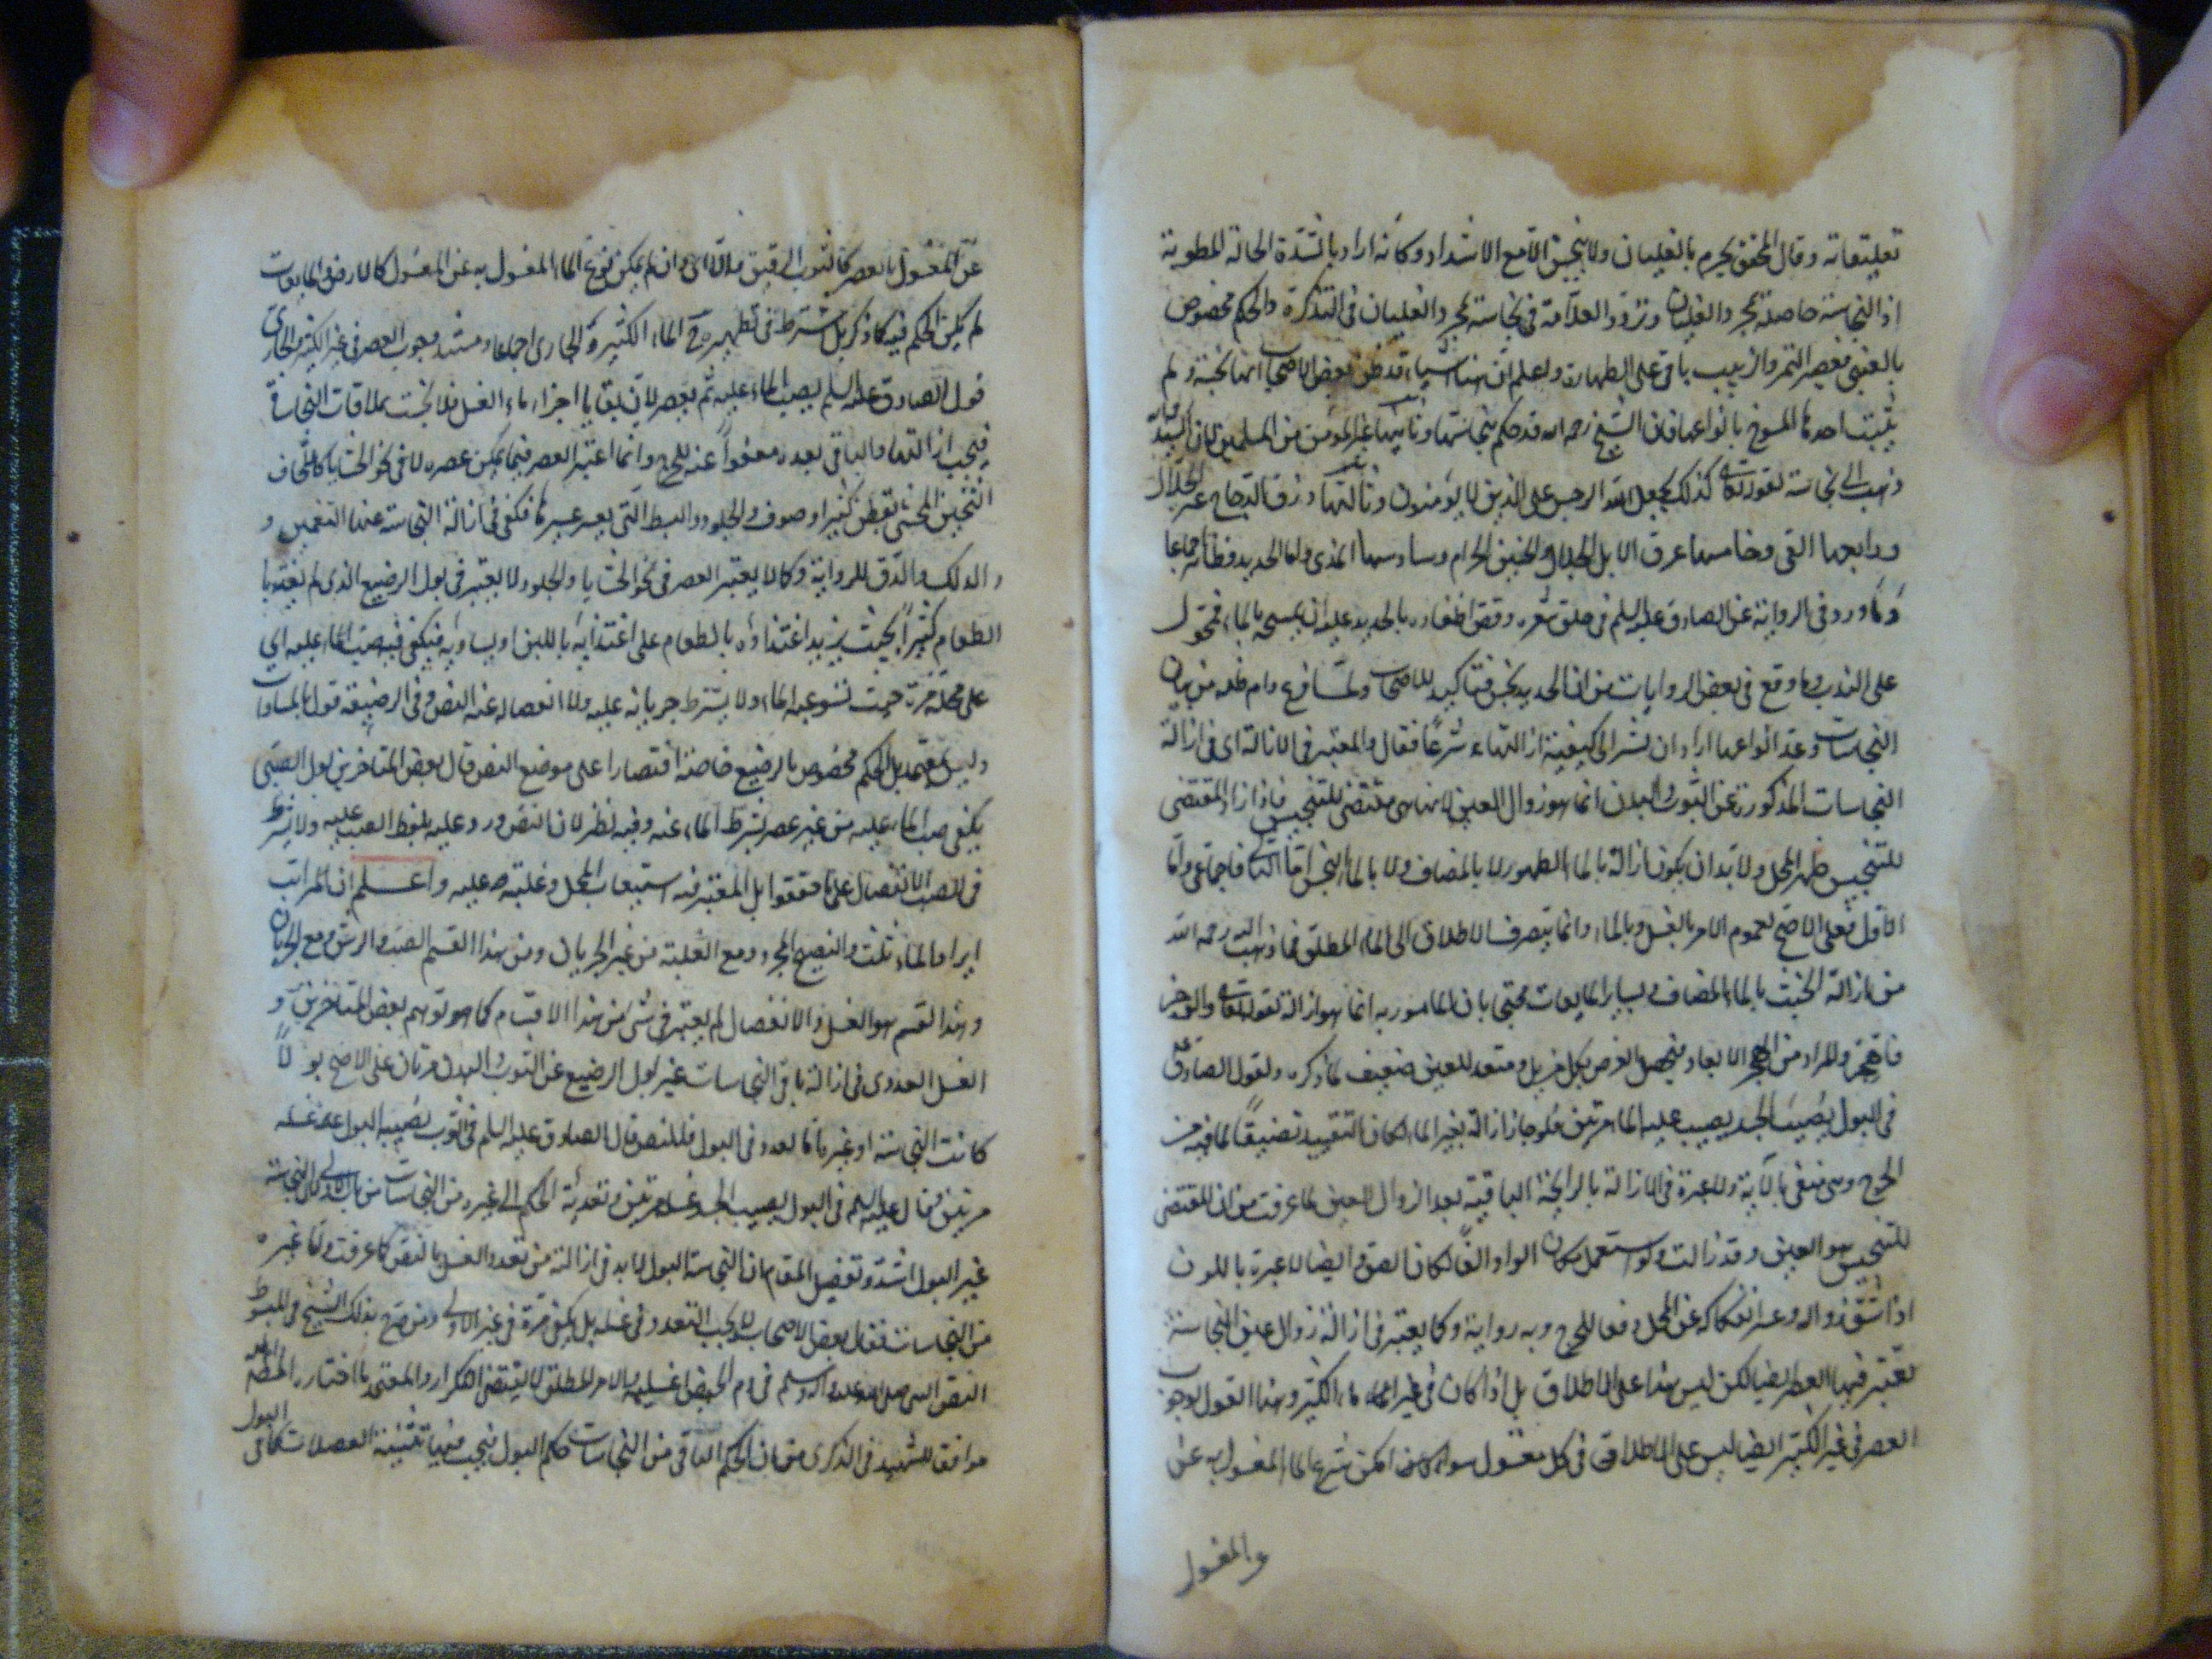 تعليقاته وقال المحقق يحرم بالغليان ولا ينجس الا مع الاشتداد وكانه اراد بالشدة الحالة المطربة
اذ النجاسة حاصلة بمجرد الغليان وتردد العلامة في نجاسة بمجرد الغليان في التذكرة والحكم مخصوص
بالعنبي فعصير التمر والزبيب باق على الطهارة واعلم ان هنا اشياء قد ظن بعض الاصحاب انها نجسة ولم
يثبت احدها المسوخ بانواعها فان الشيخ رحمه الله قد حكم بنجاستها وثانيها غير المؤمن من المسلمين فان السيد
ذهب الى نجاسته لقوله تعالى كذلك يجعل الله الرجس على الذين لا يؤمنون وثالثها ذرق الدجاج غير الجلال
ورابعها القى وخامسها عرق الابل الجلال والجنب الحرام وسادسها المذى واما الحديد فطاهر اجماعا
وما ورد في الرواية عن الصادق عليه السلم في حلق شعره وقص اظفاره بالحديد عليه ان يمسحه بالماء فمحمول
على الندب وما وقع في بعض الروايات من ان الحديد نجس فتاكيد للاصحاب ولما فرغ دام ظله من بيان
النجاسات وعد انواعها اراد ان يشير الى كيفية ازالتها شرعا فقال والمعتبر في الازالة اى في ازالة
النجاسات المذكورة عن الثوب والبدن انما هو زوال العين لانها هي مقتضى للتنجيس فاذا زال المقتضى
للتنجيس طهر المحل ولا بد ان يكون ازالة بالماء الطهور لا بالمضاف ولا بالماء النجس اما الثاني فاجماعي واما
الاول فعلى الاصح لعموم الامر بالغسل وبالماء وانما يتصرف الاطلاق الى الماء المطلق فما ذهب السيد رحمه الله
من ازالة الخبث بالماء المضاف وبساير المايعات محتجا بان المامور به انما هو ازالة لقوله تعالى والرجز
فاهجر والمراد من الهجر الابعاد فيحصل الغرض بكل مزيل ومبعد للعين ضعيف لما ذكره ولقول الصادق ع
في البول يصيب الجسد يصيب عليه الماء مرتين فلو جاز ازالة بغير الماء لكان التقييد تضييقا لما فيه من
الحرج وهي منفى بالآية ولا عبرة في الازالة بالرايحة الباقية بعد ازوال العين لما عرفت من ان المقتضى
للتنجيس هو العين وقد زالت ولو استعمل مكان الواو الفا لكان الصق وايضا لا عبرة باللون
اذا شق زواله وعسر انفكاكه عن المحل دفعا للحرج وبه رواية وكما يعتبر في ازالة زوال عين النجاسة
يعتبر فيها العصر ايضا لكن ليس هذا على الاطلاق بل اذا كان في غير الماء الكثير وهذا القول بوجوب
العصر في غير الكثير ايضا ليس على الاطلاق في كل مغسول سواء كان امكن نزع الماء المغسول به عن
والمغسول
عن المغسول بالعصر كالثوب الرقيق اولا اى ان لم يمكن نزع الماء المغسول به عن المغسول كالارض والمايعات
لم يكن الحكم فيه كما ذكر بل يشترط في تطهيره ح الماء الكثير و الجارى اجماعا ومستند وجوب العصر في غير الكثير والجارى
قول الصادق عليه السلم يصب الماء عليه ثم يعصر لان بقايا اجزاء ماء الغسل فلا نجست بملاقات النجاسة
فيجب ازالتها والباقي بعده معفوا عنه للحرج وانما اعتبر العصر فيما يمكن عصره لا في نحو الحشايا كاللحاف
الثخين المحشى بقطن كثير او صوف والجلود والبسط التي يعسر عصرها فكفى في ازالة النجاسة عنها التغميز و
الدلك والدق للرواية وكما لا يعتبر العصر في نحو الحشايا والجلود لا يعتبر في بول الرضيع الذى لم يغتذ با
الطعام كثيرا بحيث يزيد اغتذاؤه بالطعام على اغتذايه باللبن او يساويه فيكفى فيه صب الماء عليه اي
على محله مرة بحيث تستوعبه الماء ولا يشترط جريانه عليه ولا انفصاله عنه النص وفي الرضيعة قول بالمساوات
وليس بمعتمد بل الحكم مخصوص بالرضيع خاصة اقتصارا على موضع النص قال بعض المتاخرين بول الصبى
يكفى صب الماء عليه من غير عصر بشرط الماء عنه وفيه نظر لان النص ورد عليه بلفظ الصب عليه ولا يشترط
في الصب الانفصال على ما حققوا بل المعتبر فيه استيعاب المحل وغلبته عليه واعلم ان المراتب
ايراد الماء ثلث والنضح المجرد ومع الغلبة من غير الجريان ومن هذا القسم الصب والرش ومع الجريان
وهذا القسم هو الغسل والانفصال لم يعتبر في شى من هذا الاقسام كما هو توهم بعض المتاخرين و
الغسل العددى في ازالة باقى النجاسات غير بول الرضيع عن الثوب والبدن مرتان على الاصح بولا
كانت النجاسة او غيرها اما لعدد في البول فللنص قال الصادق عليه السلم في الثوب يصيبه البول اغسله
مرتين وقال عليه السلم في البول يصيب الجسد غسله مرتين وتعدية الحكم الى غيره من النجاسات من باب الاولى لان النجاسة
غير البول اشد وتفصيل المقام ان النجاسة البول لا بد في ازالته من تعدد الغسل بالنص كما عرفت واما غيره
من النجاسات فقال بعض الاصحاب لا يجب التعدد في غسله بل يكفى مرة في غير الاولى ومن صرح بذلك الشيخ في المبسوط
النص النبى صلى الله عليه واله وسلم في دم الحيض اغسليه والامر المطلق لا يقتضى التكرار والمعتمد ما اختاره المصنف
موافقا للشهيد في الذكرى من ان الحكم الباقى من النجاسات حكم البول فيجب فيها تثنية الغسلات كما في البول